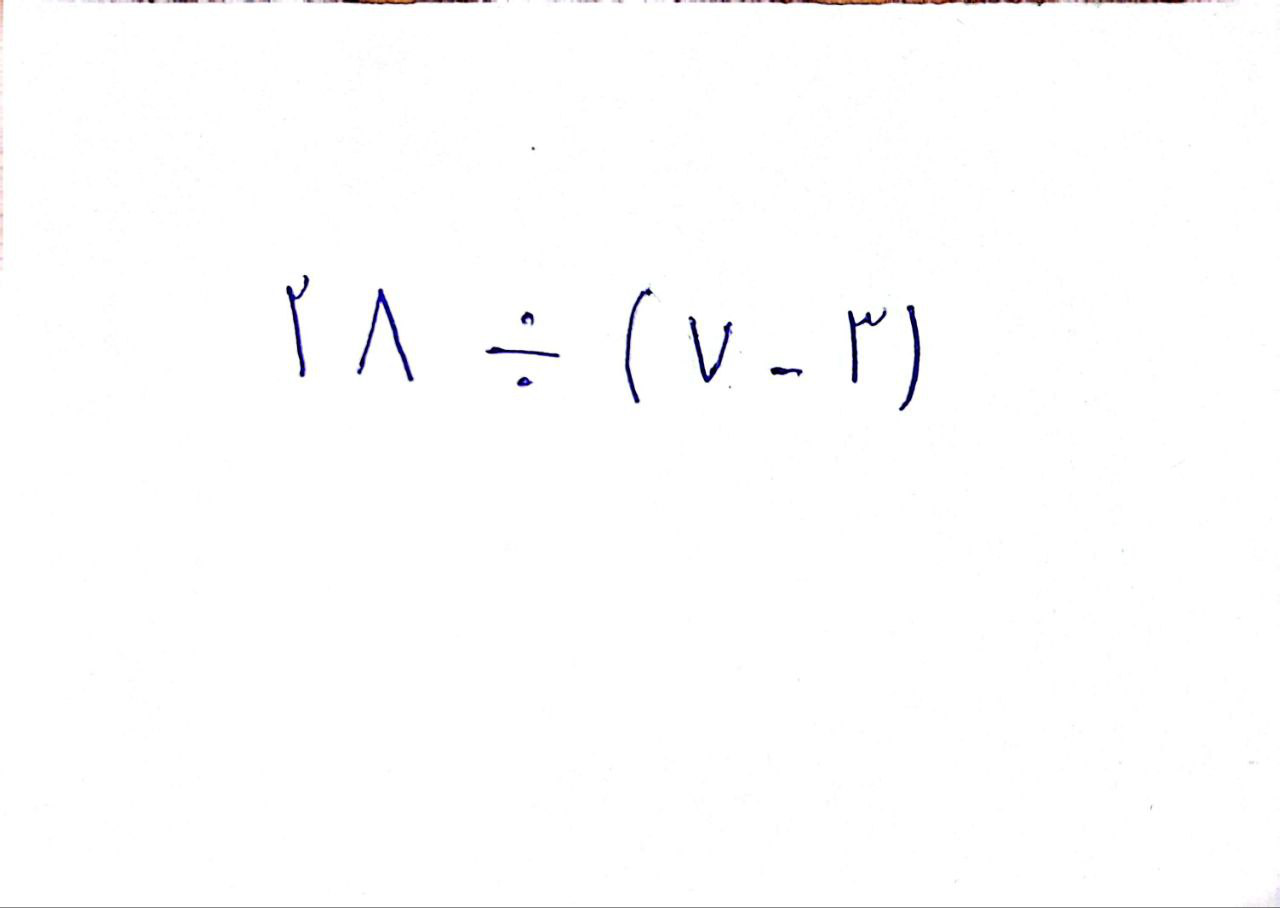 ۲۸ ÷ (۷ - ۳)